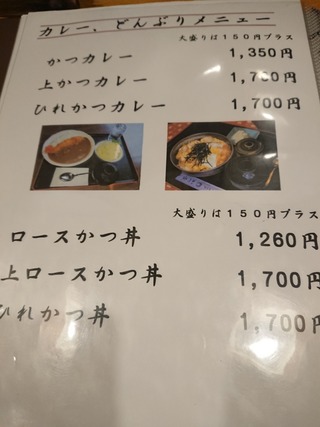 カレー、どんぶりメニュー
大盛りは150円プラス
かつカレー 1,350円
上かつカレー 1,700円
ひれかつカレー 1,700円
大盛りは150円プラス
ロースかつ丼 1,260円
上ロースかつ丼 1,700円
ひれかつ丼 1,700円